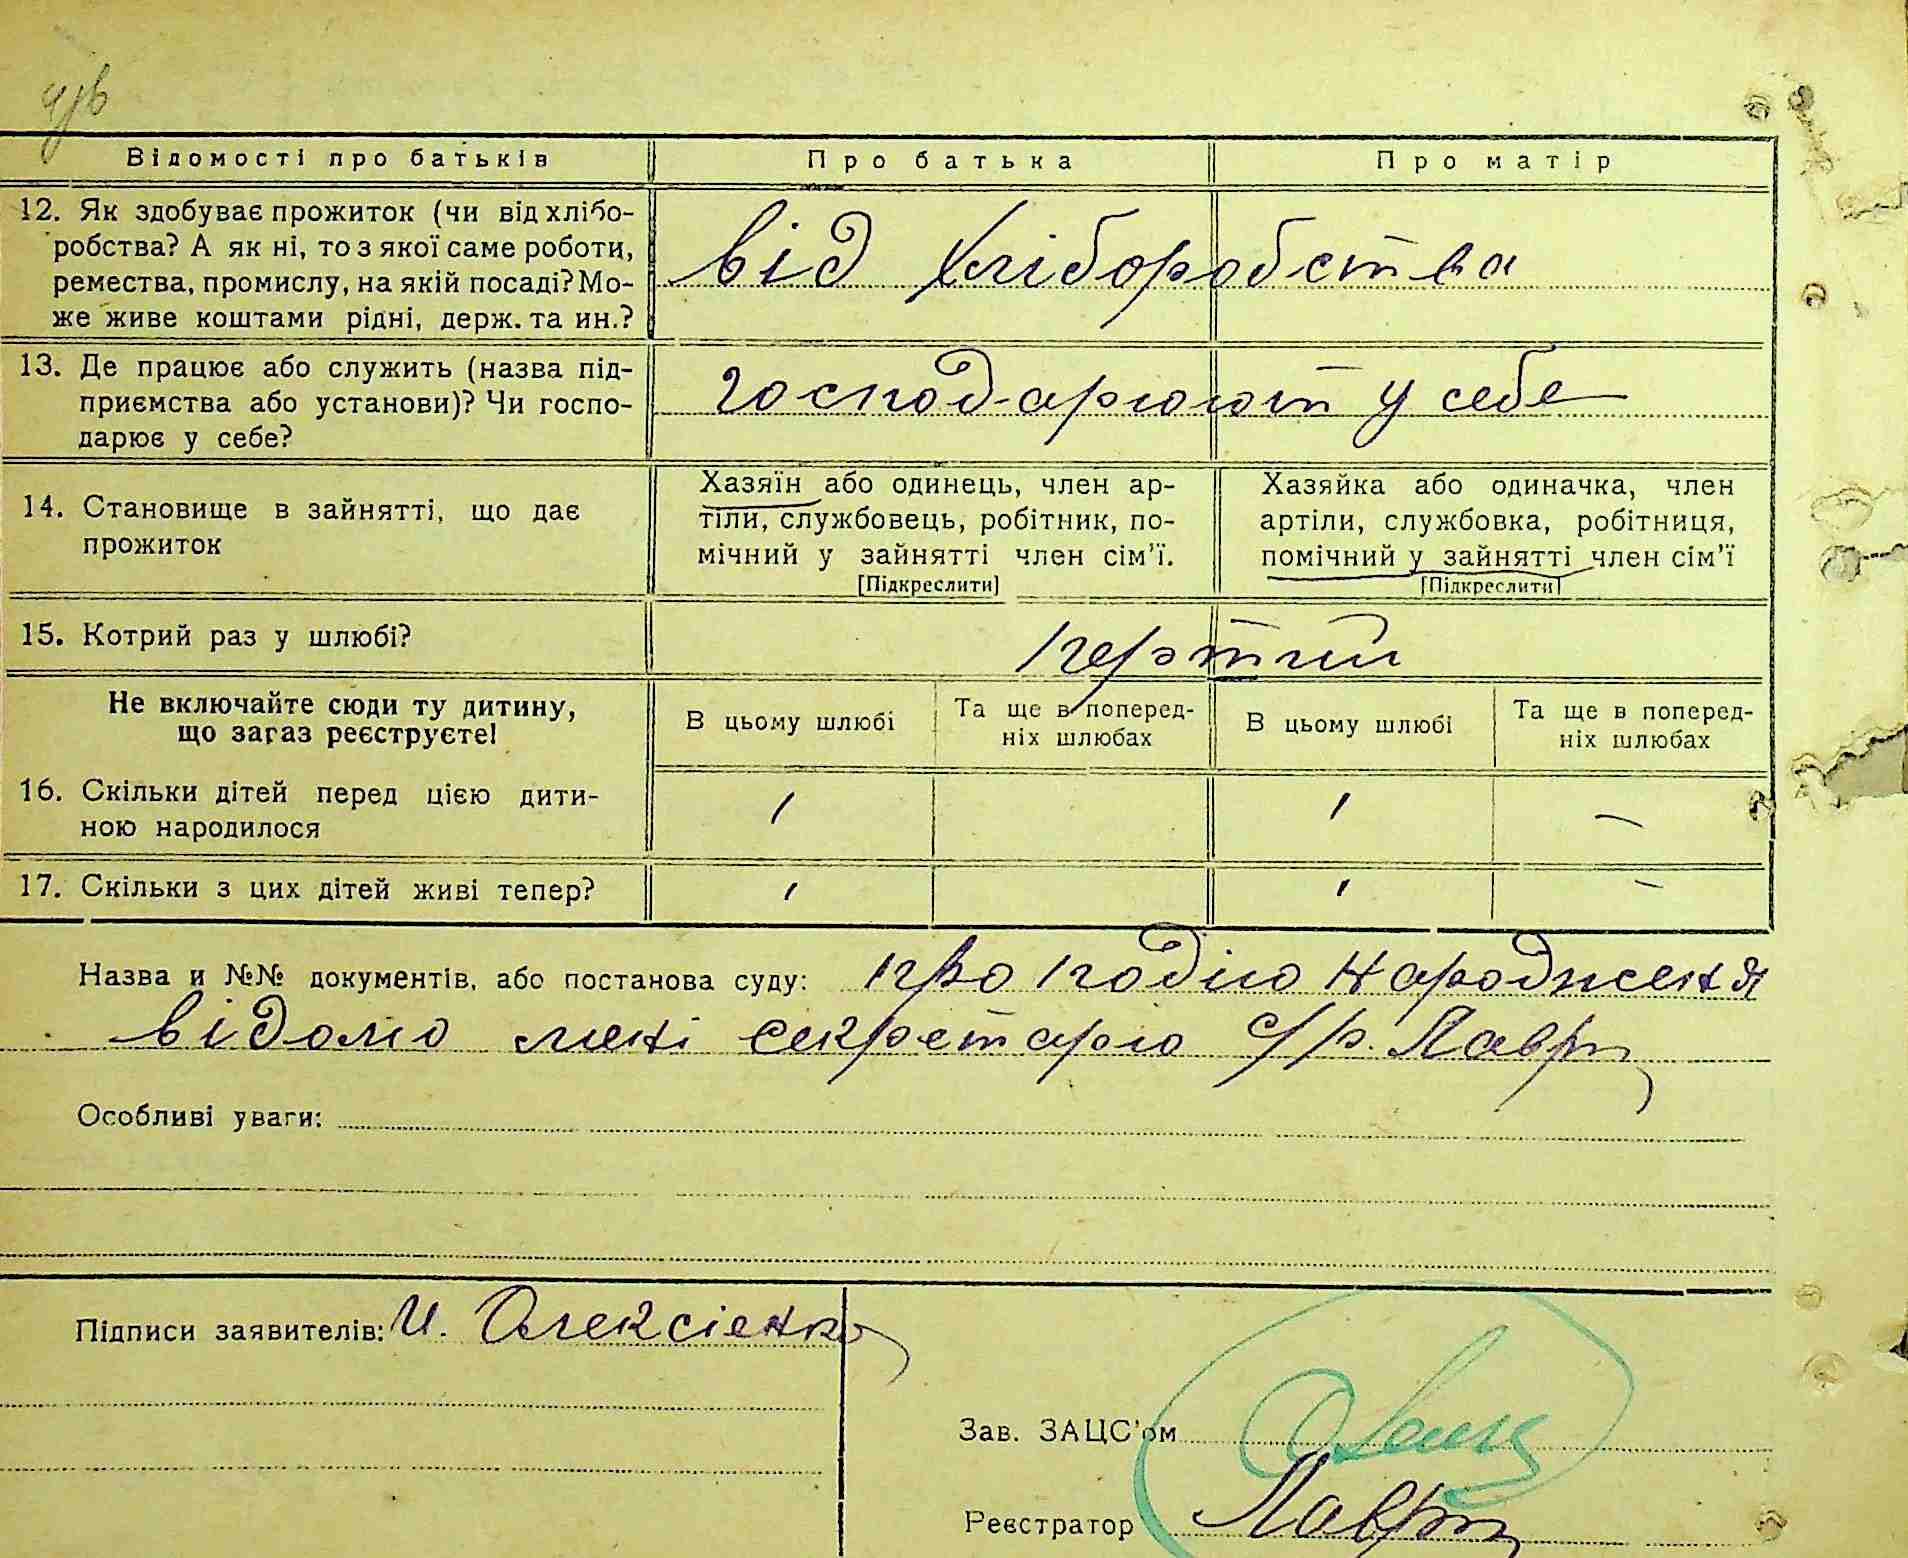 Відомості про батьків
Про батька
Про матір
12. Як здобуває прожиток (чи від хлібо-
робства? А як ні, то з якої саме роботи,
ремества, промислу, на якій посаді? Мо-
же живе коштами рідні, держ. та ин.?
від хліборобства
13. Де працює або служить (назва під-
приємства або установи)? Чи госпо-
дарює у себе?
господарюют у себе
14. Становище в зайнятті, що дає
прожиток
Хазяїн або одинець, член ар-
тіли, службовець, робітник, по-
мічний у зайнятті член сім'ї.
[Підкреслити]
Хазяйка або одиначка, член
артіли, службовка, робітниця,
помічний у зайнятті член сім'ї
[Підкреслити]
15. Котрий раз у шлюбі?
Не включайте сюди ту дитину,
що загаз реєструєте!
В цьому шлюбі
Та ще в поперед-
ніх шлюбах
В цьому шлюбі
Та ще в поперед-
ніх шлюбах
16. Скільки дітей перед цією дити-
ною народилося
1
1
—
17. Скільки з цих дітей живі тепер?
1
1
—
Назва и №№ документів, або постанова суду: про подію народження
відомо мені секретарю с/р. Лавр
Особливі уваги:
Підписи заявителів: И. Олексієнко
Зав. ЗАЦС'ом
Реєстратор Лавр